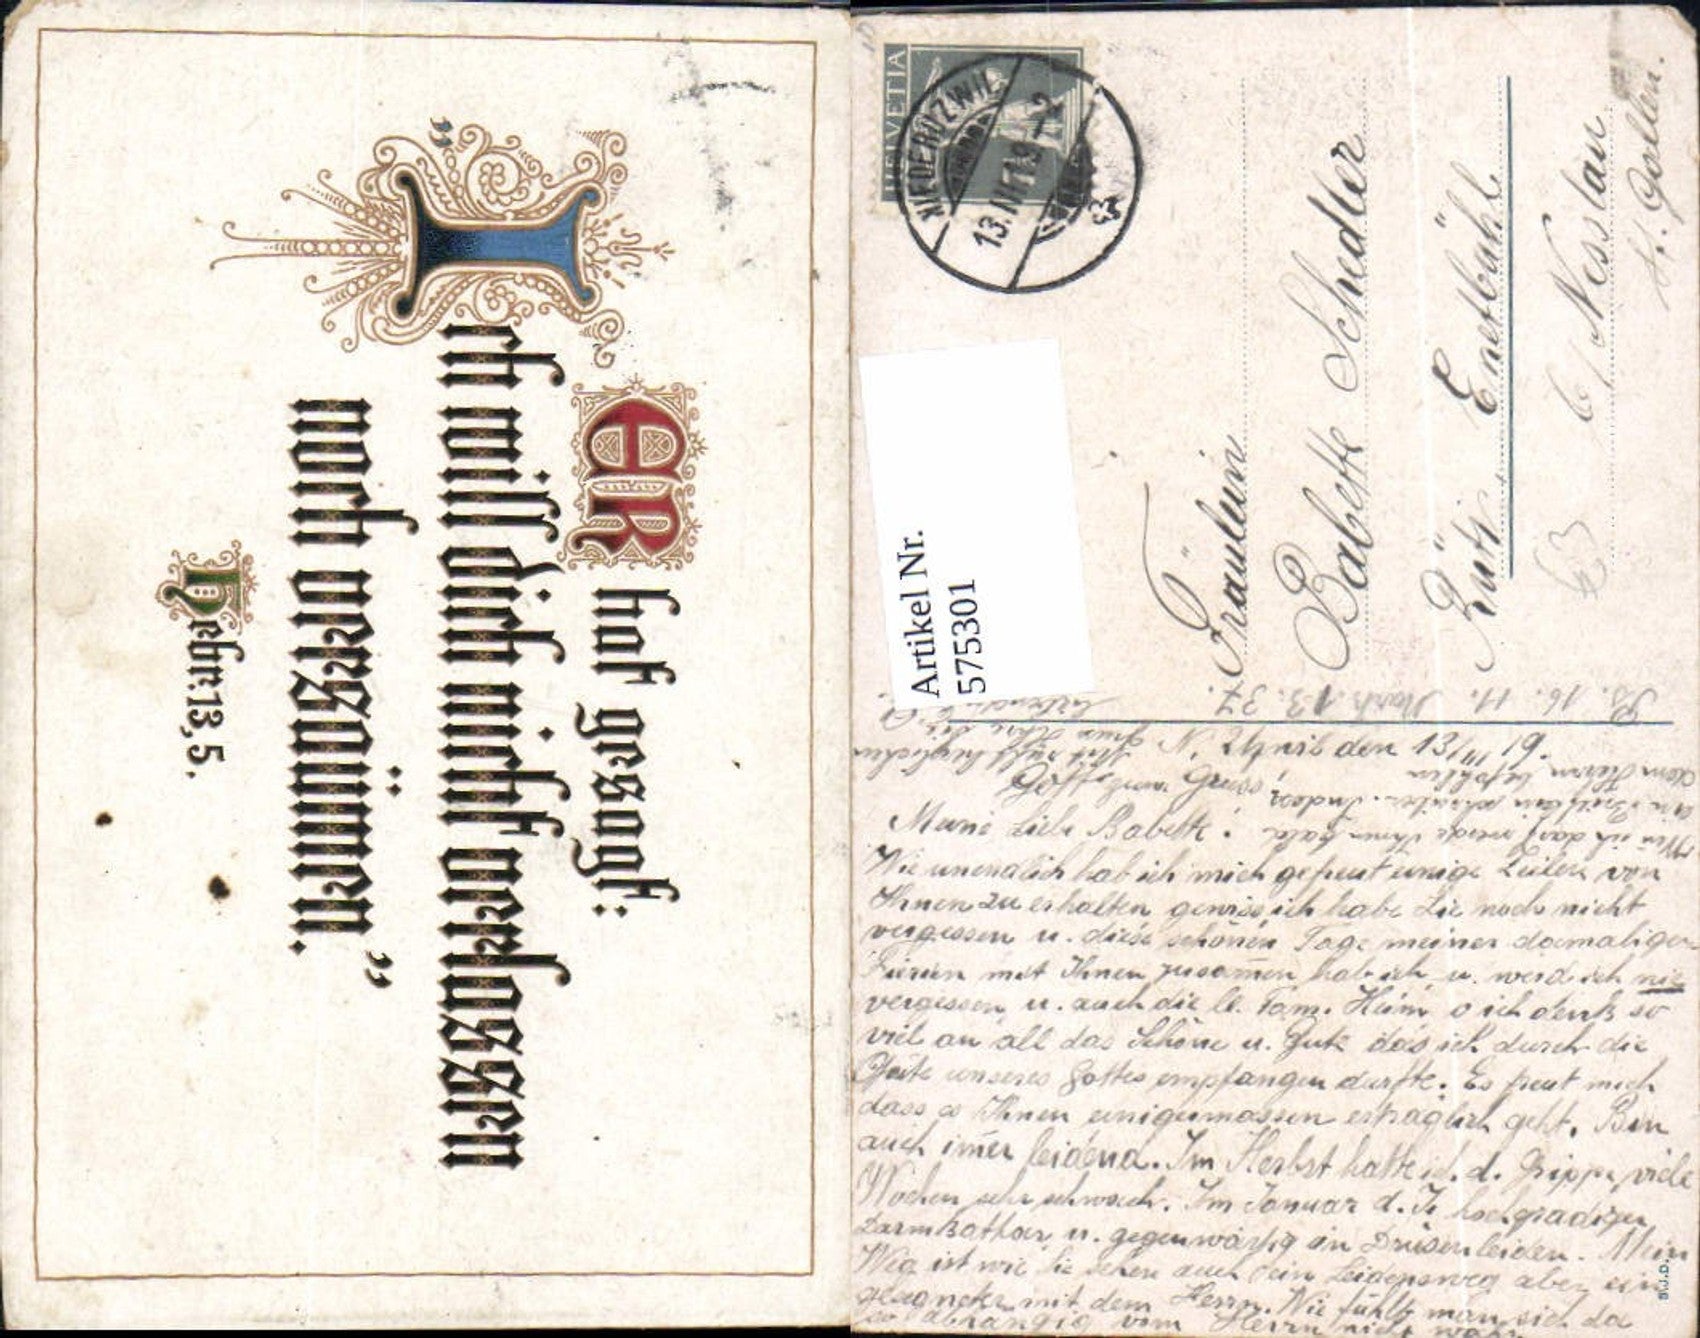 ER hat gesagt:
„Ich will dich nicht verlassen
noch versäumen.”
Hebr. 13,5.
HELVETIA
NIEDERUZWIL
13.IV.19.-2
Artikel Nr.
575301
Fräulein
Babette Schedler
Rüti Enetbühl
b/ Nesslau
St. Gallen.
Ps. 16. 11. Mark. 13. 37.
N. Uzwil den 13/IV 19.
Gott zum Gruss,
Meine Liebe Babette!
Wie unendlich hab ich mich gefreut einige Zeilen von
Ihnen zu erhalten gewiss ich habe Sie noch nicht
vergessen u. diese schönen Tage meiner damaligen
Ferien mit Ihnen zusammen hab ich u. werd ich nie
vergessen u. auch die lb. Fam. Heim o ich denk so
viel an all das Schöne u. Gute das ich durch die
Güte unseres Gottes empfangen durfte. Es freut mich
dass es Ihnen einigermassen erträglich geht. Bin
auch immer leidend. Im Herbst hatte ich d. Grippe, viele
Wochen sehr schwach. Im Januar d. J. hochgradigen
Darmkathar u. gegenwärtig ein Drüsenleiden. Mein
Weg ist wie Sie sehen auch ein Leidensweg aber ein
gesegneter mit dem Herrn. Wie fühlt man sich da
so abhängig vom Herrn nicht wahr
B.J.D.